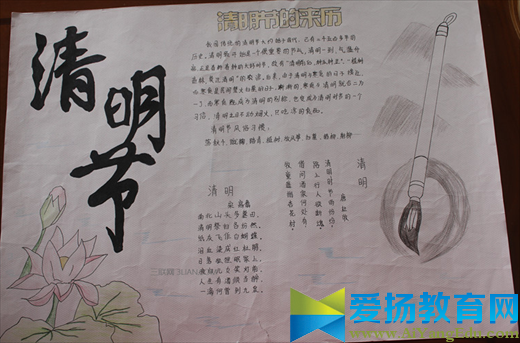 清明节
清明节的来历
我国传统的清明节大约始于周代，已有二千五百多年的
历史。清明最开始是一个很重要的节气，清明一到，气温升
高，正是春耕春种的大好时节，故有“清明前后，种瓜种豆”。“植树
造林，莫过清明”的农谚。后来，由于清明与寒食的日子接近，
而寒食是民间禁火扫墓的日子，渐渐的，寒食与清明就合二为
一了，而寒食既成为清明的别称，也变成为清明时节的一个
习俗，清明之日不动烟火，只吃凉的食品。
清明节风俗习惯：
荡秋千、蹴鞠、踏青、植树、放风筝、扫墓、
清明
宋 高翥
南北山头多墓田，
清明祭扫各纷然。
纸灰飞作白蝴蝶，
泪血染成红杜鹃。
日落狐狸眠冢上，
夜归儿女笑灯前。
人生有酒须当醉，
一滴何曾到九泉。
清明
唐 杜牧
清明时节雨纷纷
路上行人欲断魂
借问酒家何处有
牧童遥指杏花村
爱扬教育网
www.iYangEdu.com